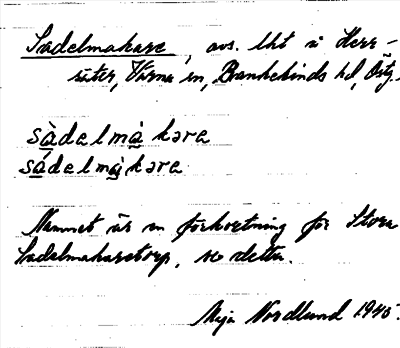 Sadelmakare, avs. lht i Herr-
säter, Värna sn, Bankekinds hd, Östg.
sàdelmà kare
sádelmàkare
Namnet är en förkortning för Stora
Sadelmakarstorp, se detta.
Maja Nordlund 1945.